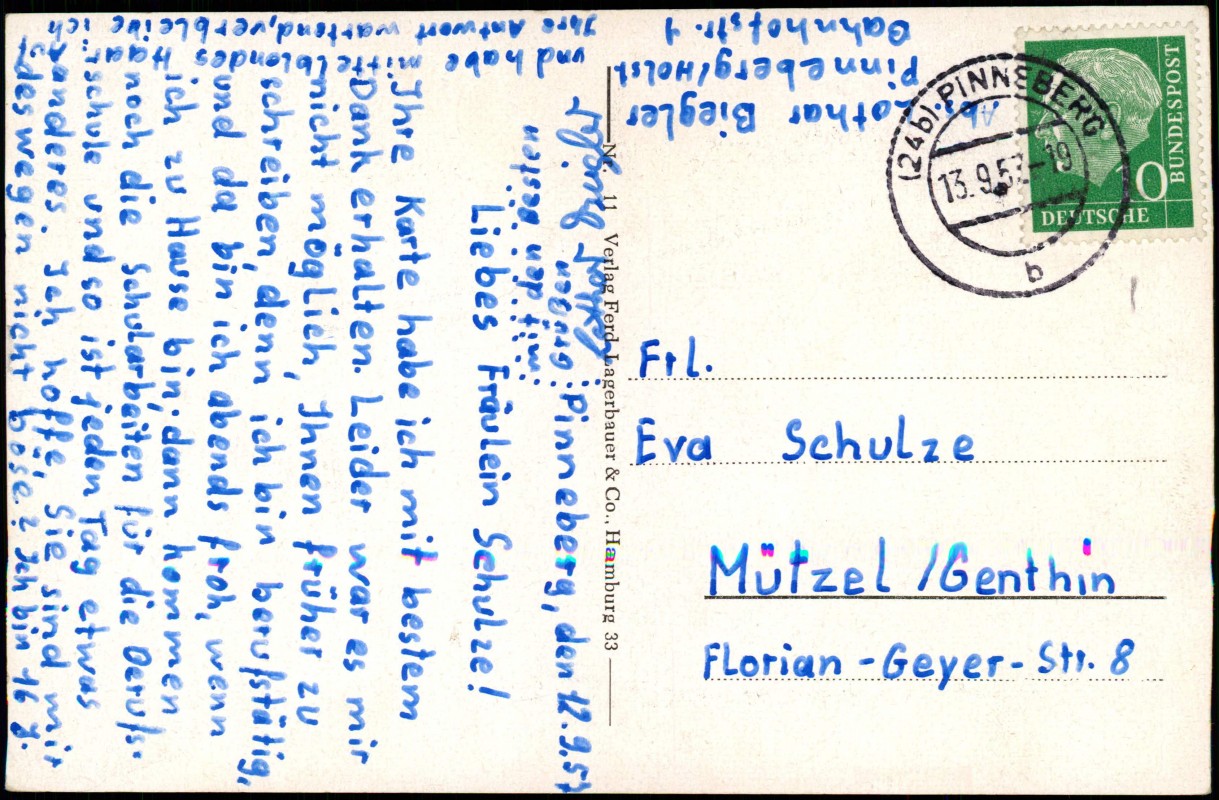 Pinneberg, den 12.9.57
Liebes Fräulein Schulze!
Ihre Karte habe ich mit bestem
Dank erhalten. Leider war es mir
nicht möglich, Ihnen früher zu
schreiben, denn ich bin berufstätig,
und da bin ich abends froh, wenn
ich zu Hause bin; dann kommen
noch die Schularbeiten für die Berufs-
schule und so ist jeden Tag etwas
anderes. Ich hoffe, Sie sind mir
deswegen nicht böse? Ich bin 16 J.
und habe mittelblondes Haar. Auf
Ihre Antwort wartend, verbleibe ich
mit den besten
Grüßen
Nr. 11 Verlag Ferd. Lagerbauer & Co., Hamburg 33
Abs: Lothar Biegler
Pinneberg/Holst
Bahnhofstr. 1
(24b) PINNEBERG
13.9.57-19
b
DEUTSCHE
BUNDESPOST
Frl.
Eva Schulze
Mützel /Genthin
Florian-Geyer-Str. 8